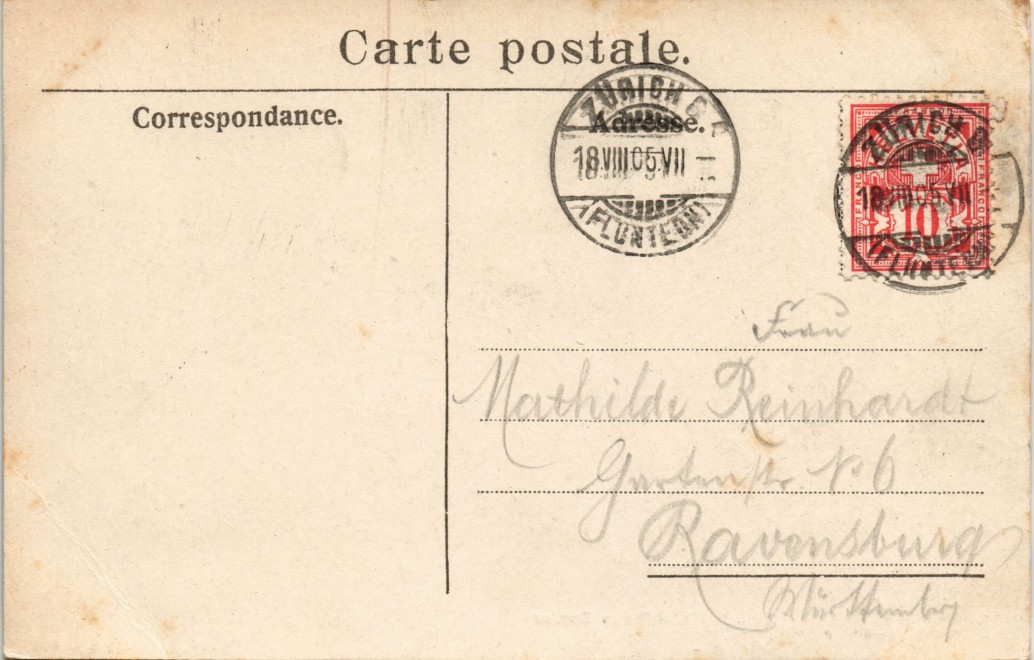 Carte postale.
Correspondance.
Adresse.
ZÜRICH
18.VIII.05.VII
(FLUNTERN)
ZÜRICH
18.VIII.05.VII
(FLUNTERN)
FRANCO FRANCO
10
Frau
Mathilde Reinhardt
Gartenstr No 6
Ravensburg
Württembg